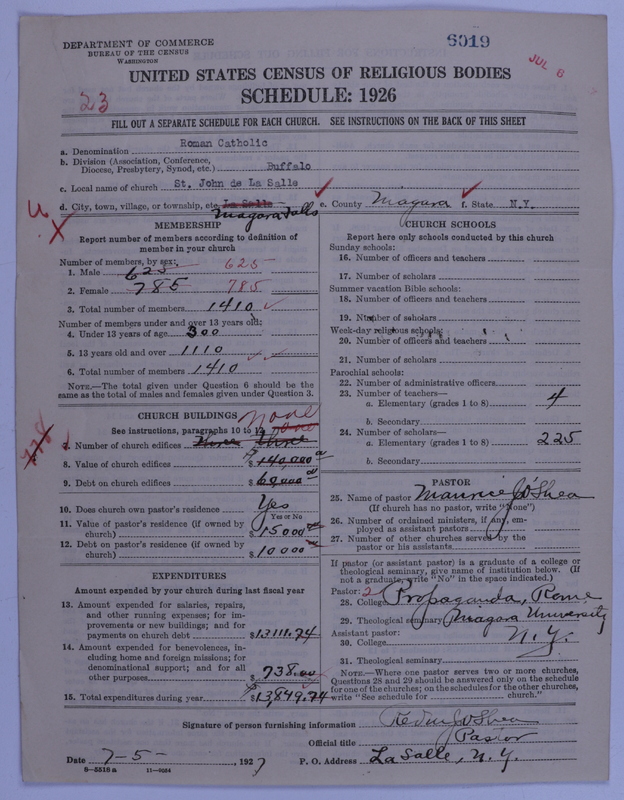 DEPARTMENT OF COMMERCE
BUREAU OF THE CENSUS
WASHINGTON
6019
JUL 6
23
UNITED STATES CENSUS OF RELIGIOUS BODIES
SCHEDULE: 1926
FILL OUT A SEPARATE SCHEDULE FOR EACH CHURCH. SEE INSTRUCTIONS ON THE BACK OF THIS SHEET
a. Denomination Roman Catholic
b. Division (Association, Conference,
Diocese, Presbytery, Synod, etc.) Buffalo
c. Local name of church St. John de La Salle
d. City, town, village, or township, etc. La Salle e. County Niagara f. State N.Y.
Niagara Falls
MEMBERSHIP
Report number of members according to definition of
member in your church
Number of members, by sex:
1. Male 625 625
2. Female 785 785
3. Total number of members 1410
Number of members under and over 13 years old:
4. Under 13 years of age 300
5. 13 years old and over 1110
6. Total number of members 1410
NOTE.—The total given under Question 6 should be the
same as the total of males and females given under Question 3.
CHURCH BUILDINGS
See instructions, paragraphs 10 to
none
7. Number of church edifices three
8. Value of church edifices $140,000
9. Debt on church edifices $60,000
10. Does church own pastor's residence Yes
Yes or No
11. Value of pastor's residence (if owned by
church) $15000
12. Debt on pastor's residence (if owned by
church) $10000
EXPENDITURES
Amount expended by your church during last fiscal year
13. Amount expended for salaries, repairs,
and other running expenses; for im-
provements or new buildings; and for
payments on church debt $13111.74
14. Amount expended for benevolences, in-
cluding home and foreign missions; for
denominational support; and for all
other purposes $738.00
15. Total expenditures during year $13,849.74
CHURCH SCHOOLS
Report here only schools conducted by this church
Sunday schools:
16. Number of officers and teachers
17. Number of scholars
Summer vacation Bible schools:
18. Number of officers and teachers
19. Number of scholars
Week-day religious schools:
20. Number of officers and teachers
21. Number of scholars
Parochial schools:
22. Number of administrative officers
23. Number of teachers—
a. Elementary (grades 1 to 8) 4
b. Secondary
24. Number of scholars—
a. Elementary (grades 1 to 8) 225
b. Secondary
PASTOR
25. Name of pastor Maurice J O'Shea
(If church has no pastor, write "None")
26. Number of ordained ministers, if any, em-
ployed as assistant pastors
27. Number of other churches served by the
pastor or his assistants
If pastor (or assistant pastor) is a graduate of a college or
theological seminary, give name of institution below. (If
not a graduate, write "No" in the space indicated.)
Pastor: 2
28. College Propaganda, Rome
29. Theological seminary Niagara University
Assistant pastor: N.Y.
30. College
31. Theological seminary
NOTE.—Where one pastor serves two or more churches,
Questions 28 and 29 should be answered only on the schedule
for one of the churches; on the schedules for the other churches,
write "See schedule for church."
Signature of person furnishing information O'Shea
Official title Pastor
Date 7-5-, 1927 P. O. Address La Salle, N.Y.
6—5518a 11—9054